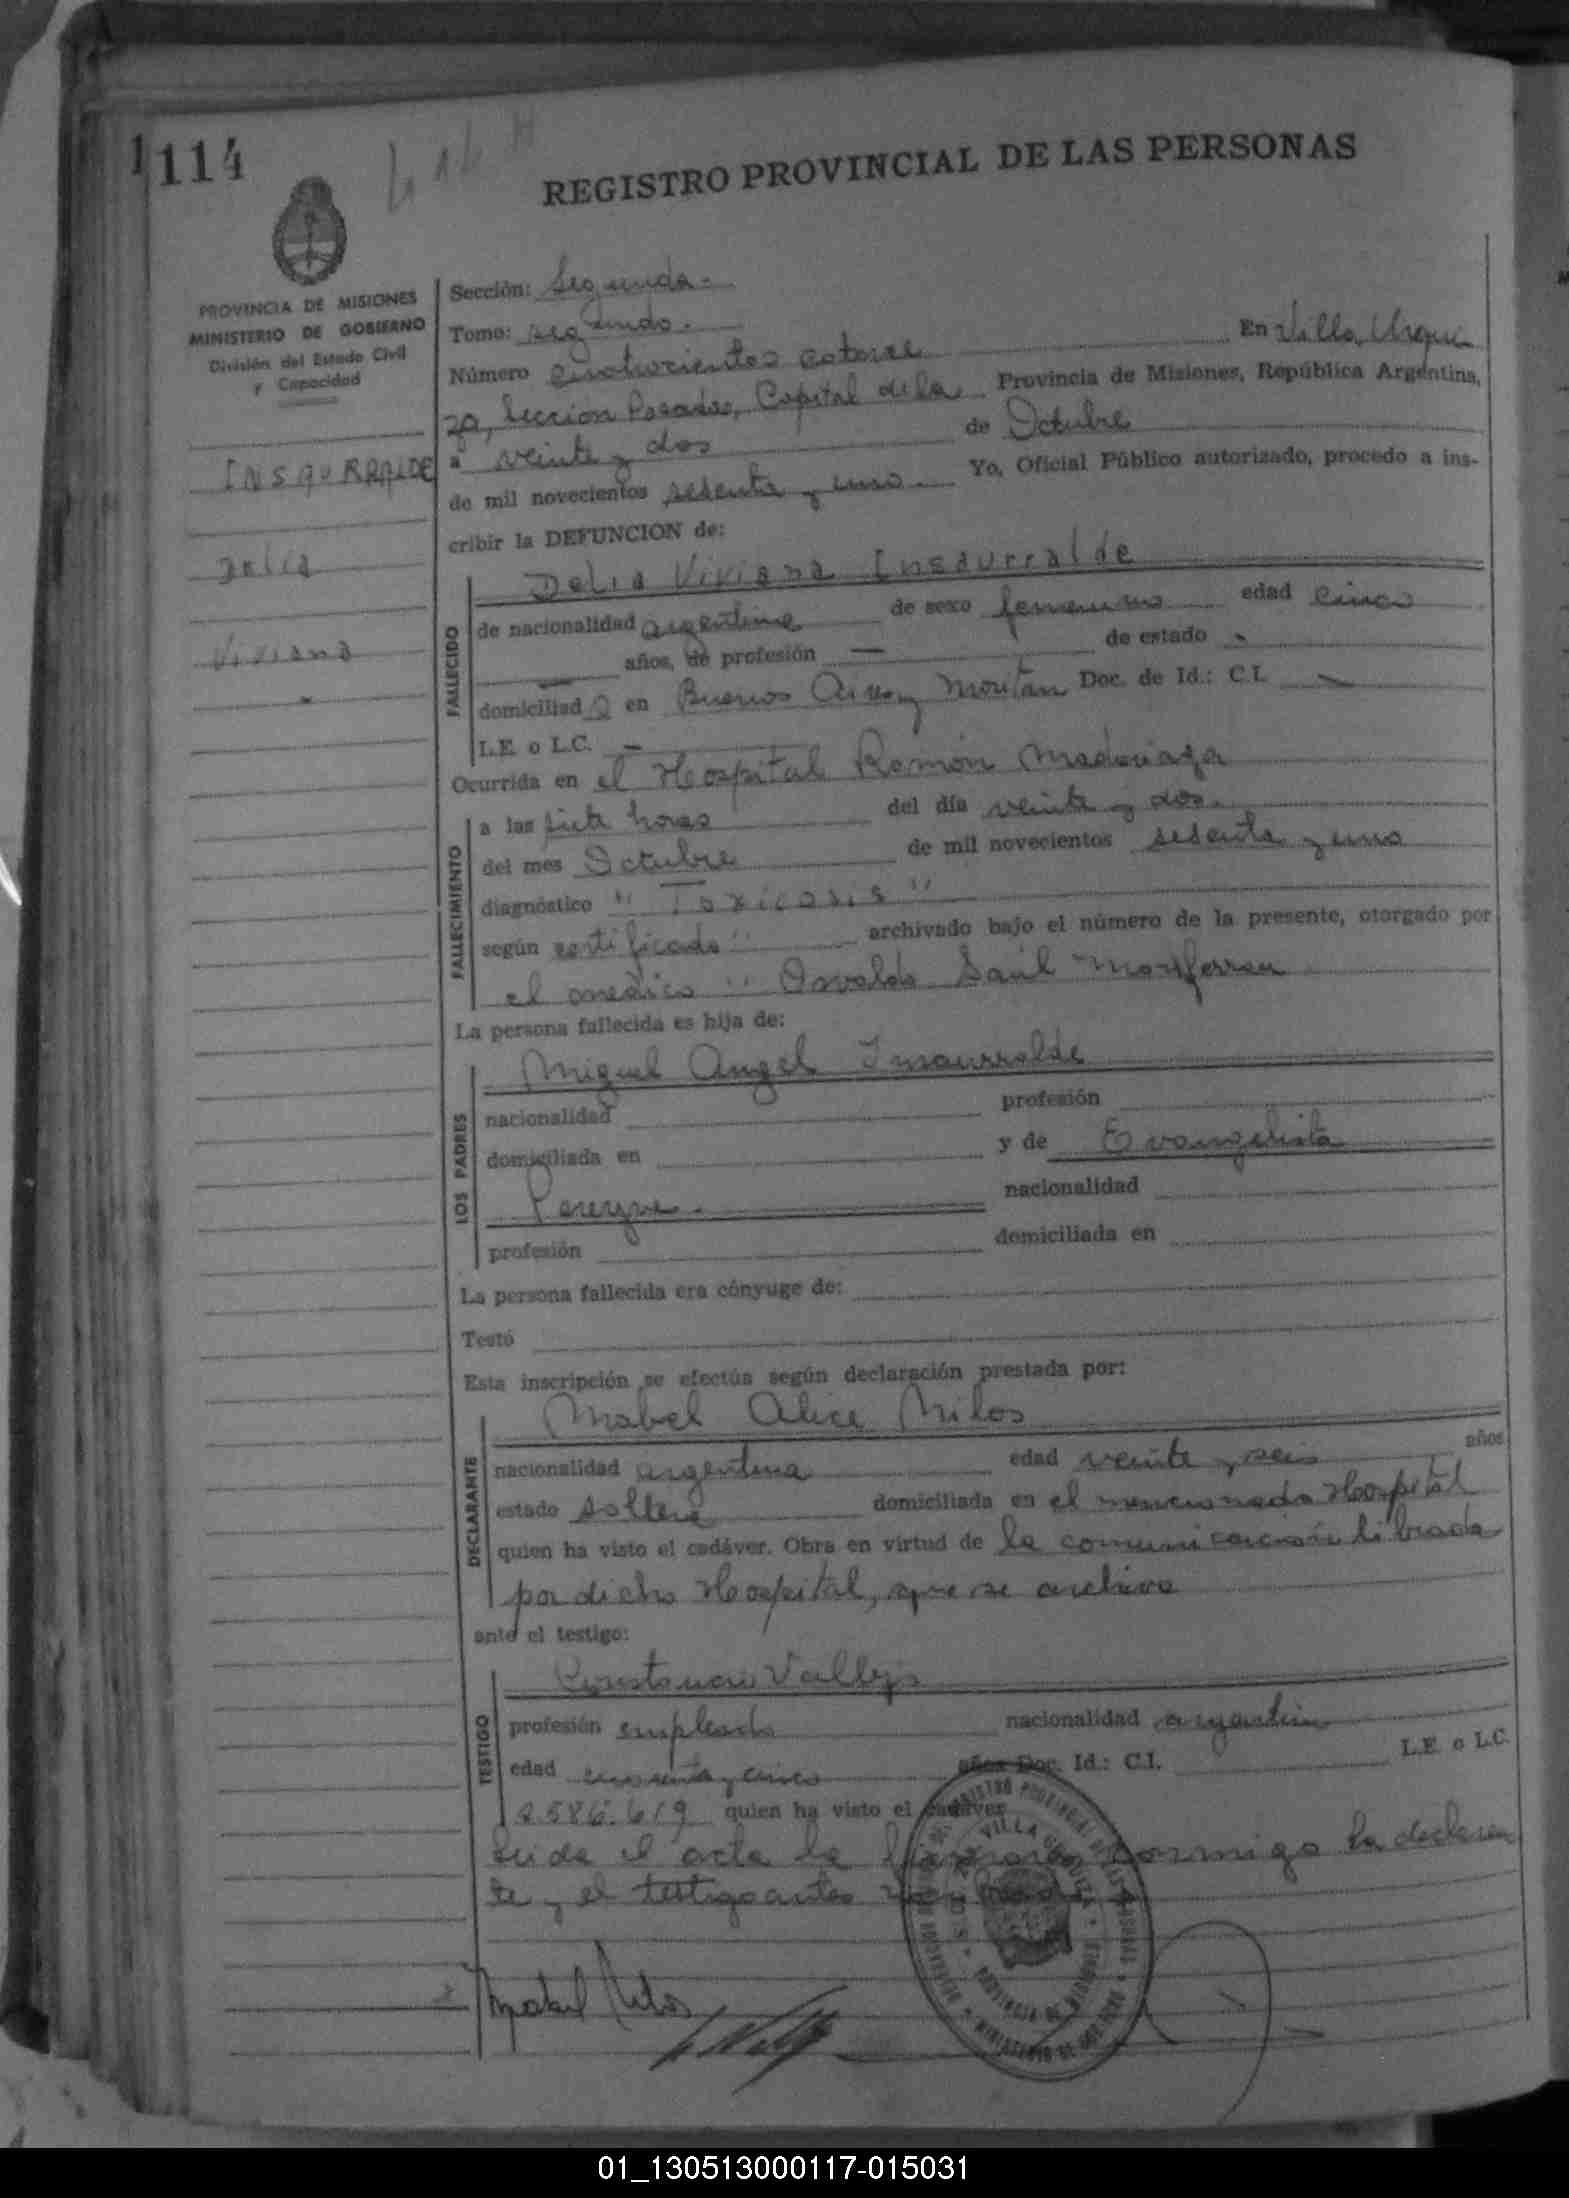 1114
REGISTRO PROVINCIAL DE LAS PERSONAS
PROVINCIA DE MISIONES
MINISTERIO DE GOBIERNO
División del Estado Civil
y Capacidad
INSAURRALDE
Delia
Viviana
Sección: Segunda.-
Tomo: segundo.
Número cuatrocientos catorce En Villa Urqui
za, Seccion Posadas, Capital de la Provincia de Misiones, República Argentina,
a veinte y dos de Octubre
de mil novecientos sesenta y uno. Yo, Oficial Público autorizado, procedo a ins-
cribir la DEFUNCION de:
Delia Viviana Insaurralde
FALLECIDO
de nacionalidad argentina de sexo femenino edad cinco
años, de profesión — de estado -
domiciliad a en Buenos Aires y Doc. de Id.: C.I. -
L.E. o L.C. -
Ocurrida en el Hospital Ramón Madariaga
FALLECIMIENTO
a las siete horas del día veinte y dos.
del mes Octubre de mil novecientos sesenta y uno
diagnóstico "Toxicosis"
según certificado archivado bajo el número de la presente, otorgado por
el medico Osvaldo Saúl
La persona fallecida es hija de:
LOS PADRES
Miguel Angel Insaurralde
nacionalidad profesión
domiciliada en y de Evangelista
Pereyra. nacionalidad
profesión domiciliada en
La persona fallecida era cónyuge de:
Testó
Esta inscripción se efectúa según declaración prestada por:
DECLARANTE
Mabel Alice Milos
nacionalidad argentina edad veinte y seis años
estado soltera domiciliada en el mencionado Hospital
quien ha visto el cadáver. Obra en virtud de la comunicación librada
por dicho Hospital, que se archiva
ante el testigo:
TESTIGO
Vallejos
profesión empleado nacionalidad argentino
edad y cinco años Doc. Id.: C.I. L.E. o L.C.
2.586.619 quien ha visto el cadáver
Leida el acta la conmigo la declaran
te y el testigo antes
Mabel Milos
01_130513000117-015031